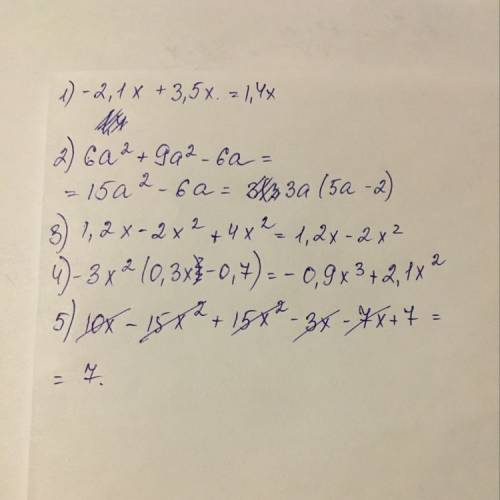 1) -2,1x + 3,5x. = 1,4x
2) 6a² + 9a² - 6a =
= 15a² - 6a = 3a (5a - 2)
3) 1,2x - 2x² + 4x² = 1,2x - 2x²
4) -3x² (0,3x - 0,7) = -0,9x³ + 2,1x²
5) 10x - 15x² + 15x² - 3x - 7x + 7 =
= 7.